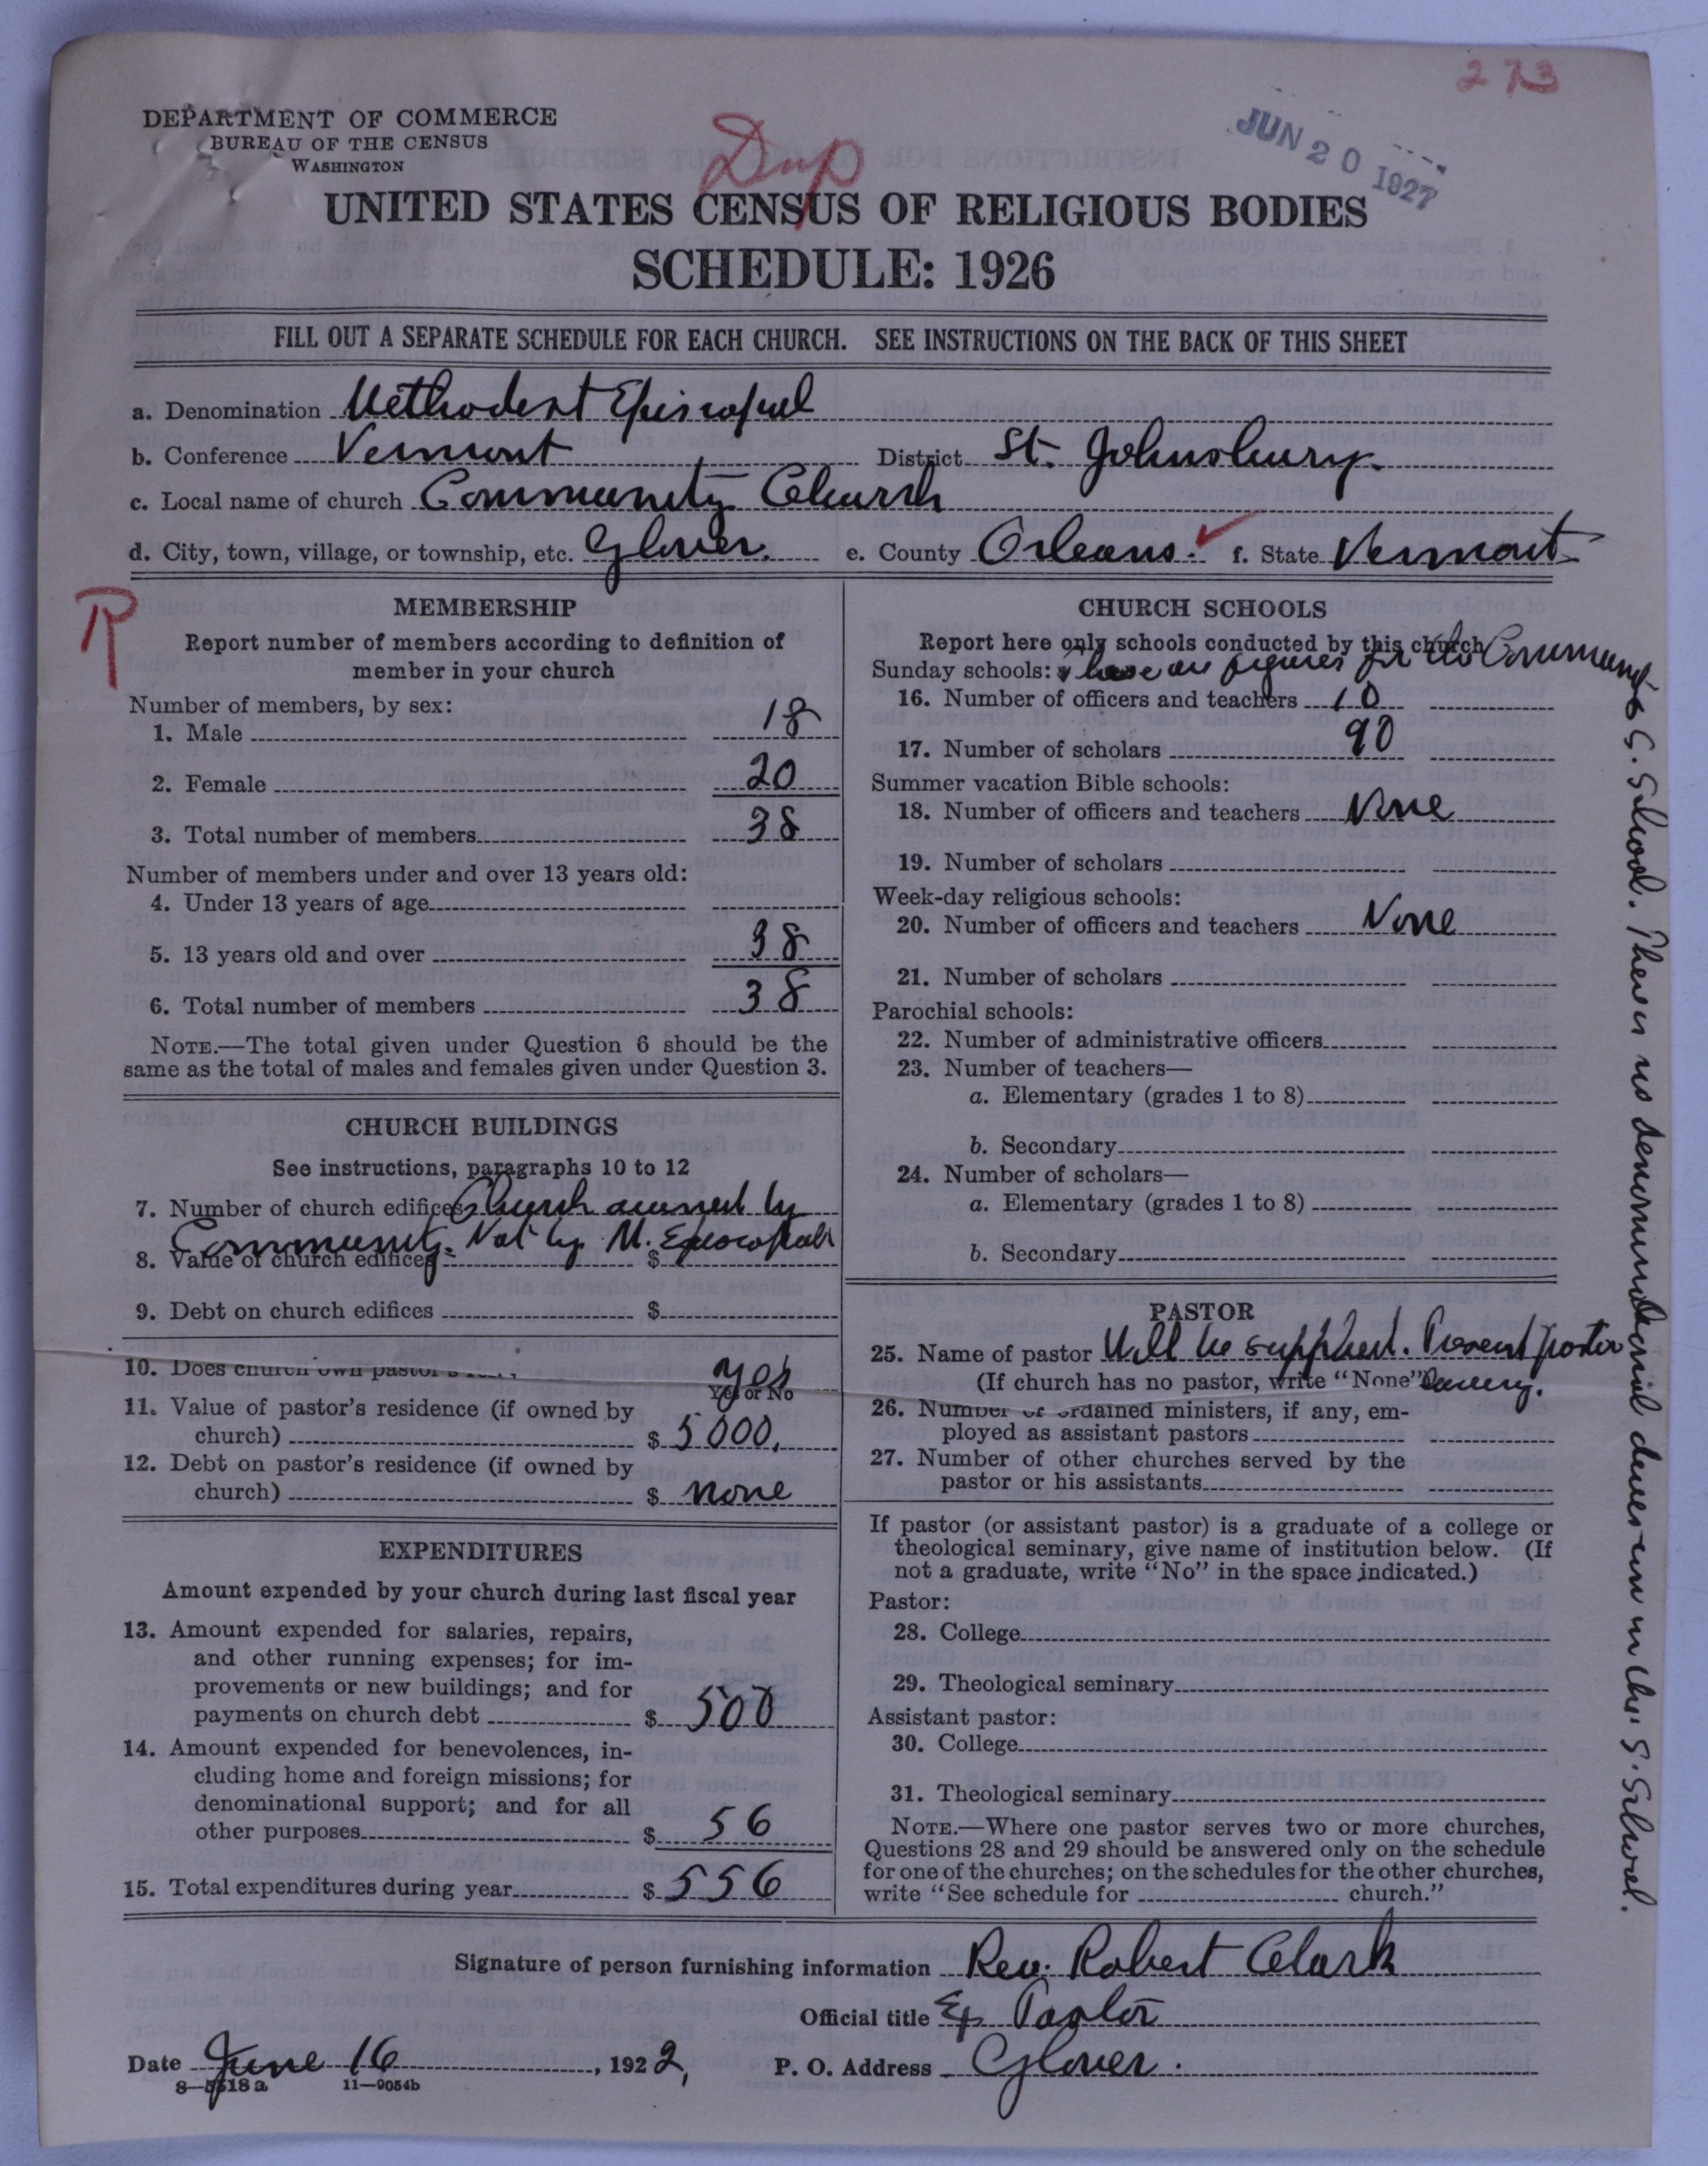 273
DEPARTMENT OF COMMERCE
BUREAU OF THE CENSUS
WASHINGTON
Dup
JUN 20 1927
UNITED STATES CENSUS OF RELIGIOUS BODIES
SCHEDULE: 1926
FILL OUT A SEPARATE SCHEDULE FOR EACH CHURCH. SEE INSTRUCTIONS ON THE BACK OF THIS SHEET
a. Denomination Methodist Episcopal
b. Conference Vermont District St. Johnsbury.
c. Local name of church Community Church
d. City, town, village, or township, etc. Glover. e. County Orleans. f. State Vermont
R
MEMBERSHIP
Report number of members according to definition of
member in your church
Number of members, by sex:
1. Male 18
2. Female 20
3. Total number of members 38
Number of members under and over 13 years old:
4. Under 13 years of age
5. 13 years old and over 38
6. Total number of members 38
NOTE.—The total given under Question 6 should be the
same as the total of males and females given under Question 3.
CHURCH BUILDINGS
See instructions, paragraphs 10 to 12
7. Number of church edifices Church owned by
Community. Not by M. Episcopals
8. Value of church edifices $
9. Debt on church edifices $
10. Does church own pastor's yes
Yes or No
11. Value of pastor's residence (if owned by
church) $ 5000.
12. Debt on pastor's residence (if owned by
church) $ none
EXPENDITURES
Amount expended by your church during last fiscal year
13. Amount expended for salaries, repairs,
and other running expenses; for im-
provements or new buildings; and for
payments on church debt $ 500
14. Amount expended for benevolences, in-
cluding home and foreign missions; for
denominational support; and for all
other purposes $ 56
15. Total expenditures during year $ 556
CHURCH SCHOOLS
Report here only schools conducted by this church
Sunday schools: these are figures for the Community S. School. There is no denominational division in the S. School.
16. Number of officers and teachers 10
17. Number of scholars 90
Summer vacation Bible schools:
18. Number of officers and teachers None
19. Number of scholars
Week-day religious schools:
20. Number of officers and teachers None
21. Number of scholars
Parochial schools:
22. Number of administrative officers
23. Number of teachers—
a. Elementary (grades 1 to 8)
b. Secondary
24. Number of scholars—
a. Elementary (grades 1 to 8)
b. Secondary
PASTOR
25. Name of pastor Will be supplied. Present pastor
(If church has no pastor, write "None") leaving.
26. Number of ordained ministers, if any, em-
ployed as assistant pastors
27. Number of other churches served by the
pastor or his assistants
If pastor (or assistant pastor) is a graduate of a college or
theological seminary, give name of institution below. (If
not a graduate, write "No" in the space indicated.)
Pastor:
28. College
29. Theological seminary
Assistant pastor:
30. College
31. Theological seminary
NOTE.—Where one pastor serves two or more churches,
Questions 28 and 29 should be answered only on the schedule
for one of the churches; on the schedules for the other churches,
write "See schedule for church."
Signature of person furnishing information Rev. Robert Clark
Official title Ex Pastor
Date June 16, 1922, P. O. Address Glover.
8—5518a 11—9054b